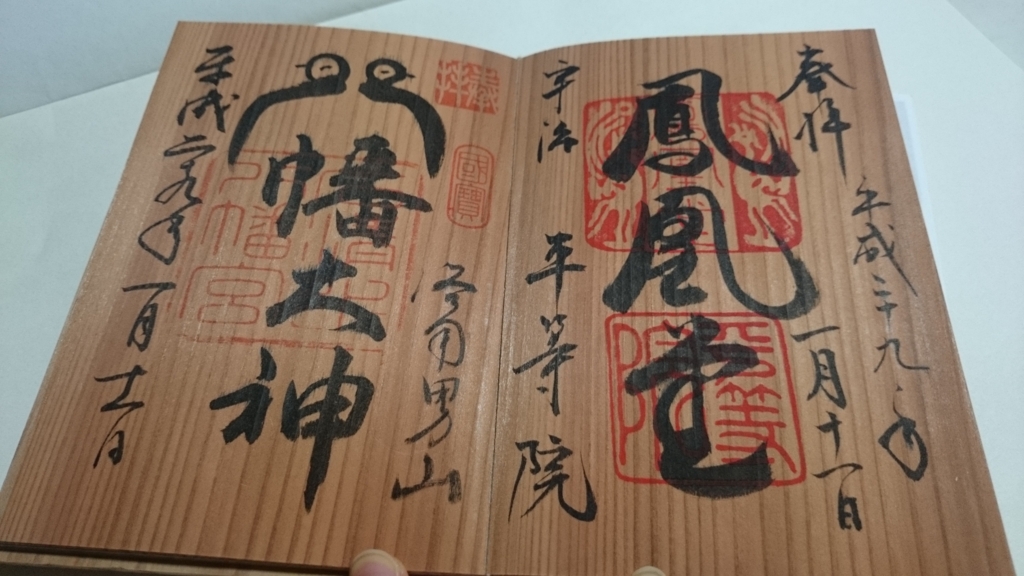 奉拝
平成二十九年
一月十一日
鳳凰堂
宇治 平等院
國寶
男山
八幡大神
八幡宮
平成二九年 一月十一日